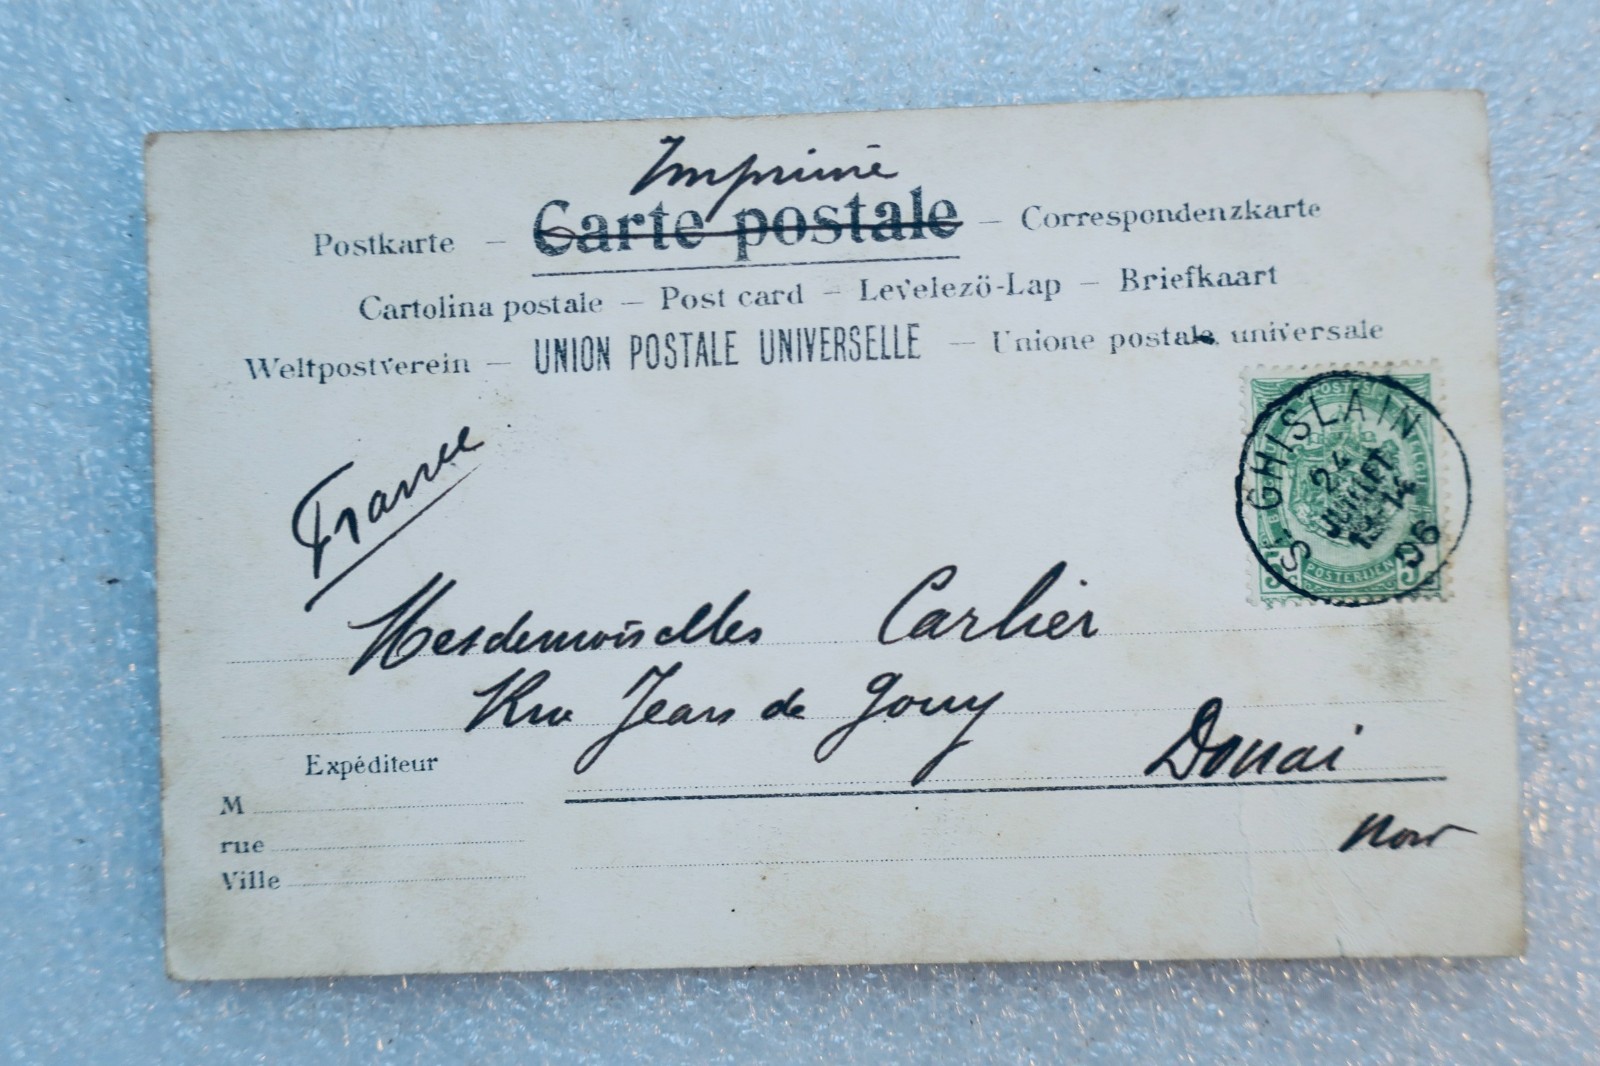 Imprimé
Postkarte – Carte postale – Correspondenzkarte
Cartolina postale – Post card – Levelezö-Lap – Briefkaart
Weltpostverein – UNION POSTALE UNIVERSELLE – Unione postale universale
France
POSTES
ST GHISLAIN
24
JUILLET
06
POSTERIJEN
5 5
Mesdemoiselles Carlier
Rue Jean de Gouy
Douai
Nord
Expéditeur
M
rue
Ville